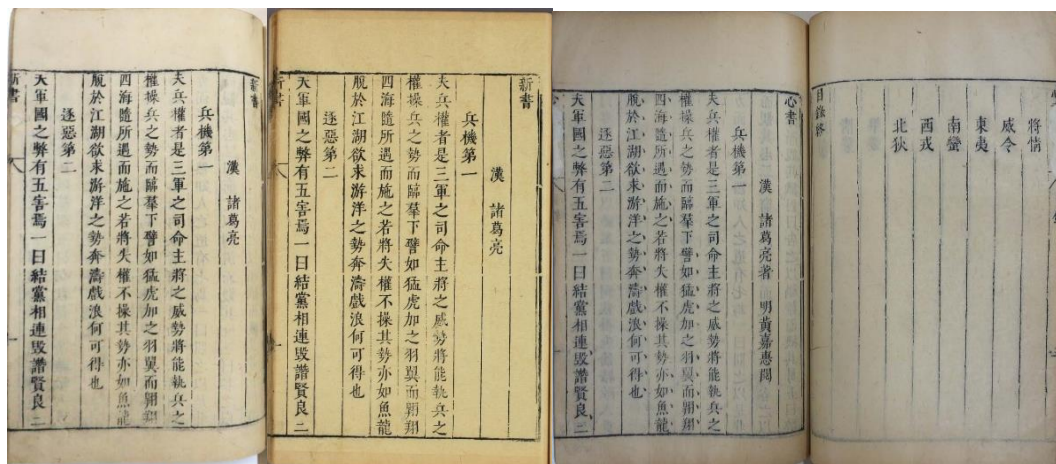 新書
漢 諸葛亮
兵機第一
夫兵權者是三軍之司命主將之威勢將能執兵之
權操兵之勢而臨羣下譬如猛虎加之羽翼而翱翔
四海隨所遇而施之若將失權不操其勢亦如魚龍
脫於江湖欲求游洋之勢奔濤戲浪何可得也
逐惡第二
夫軍國之弊有五害焉一曰結黨相連毀譖賢良二
新書
一
新書
漢 諸葛亮
兵機第一
夫兵權者是三軍之司命主將之威勢將能執兵之
權操兵之勢而臨羣下譬如猛虎加之羽翼而翱翔
四海隨所遇而施之若將失權不操其勢亦如魚龍
脫於江湖欲求游洋之勢奔濤戲浪何可得也
逐惡第二
夫軍國之弊有五害焉一曰結黨相連毀譖賢良二
新書
一
將情
威令
東夷
南蠻
西戎
北狄
目錄終
心書
漢 諸葛亮著 明黃嘉惠閱
兵機第一
夫兵權者是三軍之司命主將之威勢將能執兵之
權操兵之勢而臨羣下譬如猛虎加之羽翼而翱翔
四海隨所遇而施之若將失權不操其勢亦如魚龍
脫於江湖欲求游洋之勢奔濤戲浪何可得也
逐惡第二
夫軍國之弊有五害焉一曰結黨相連毀譖賢良二